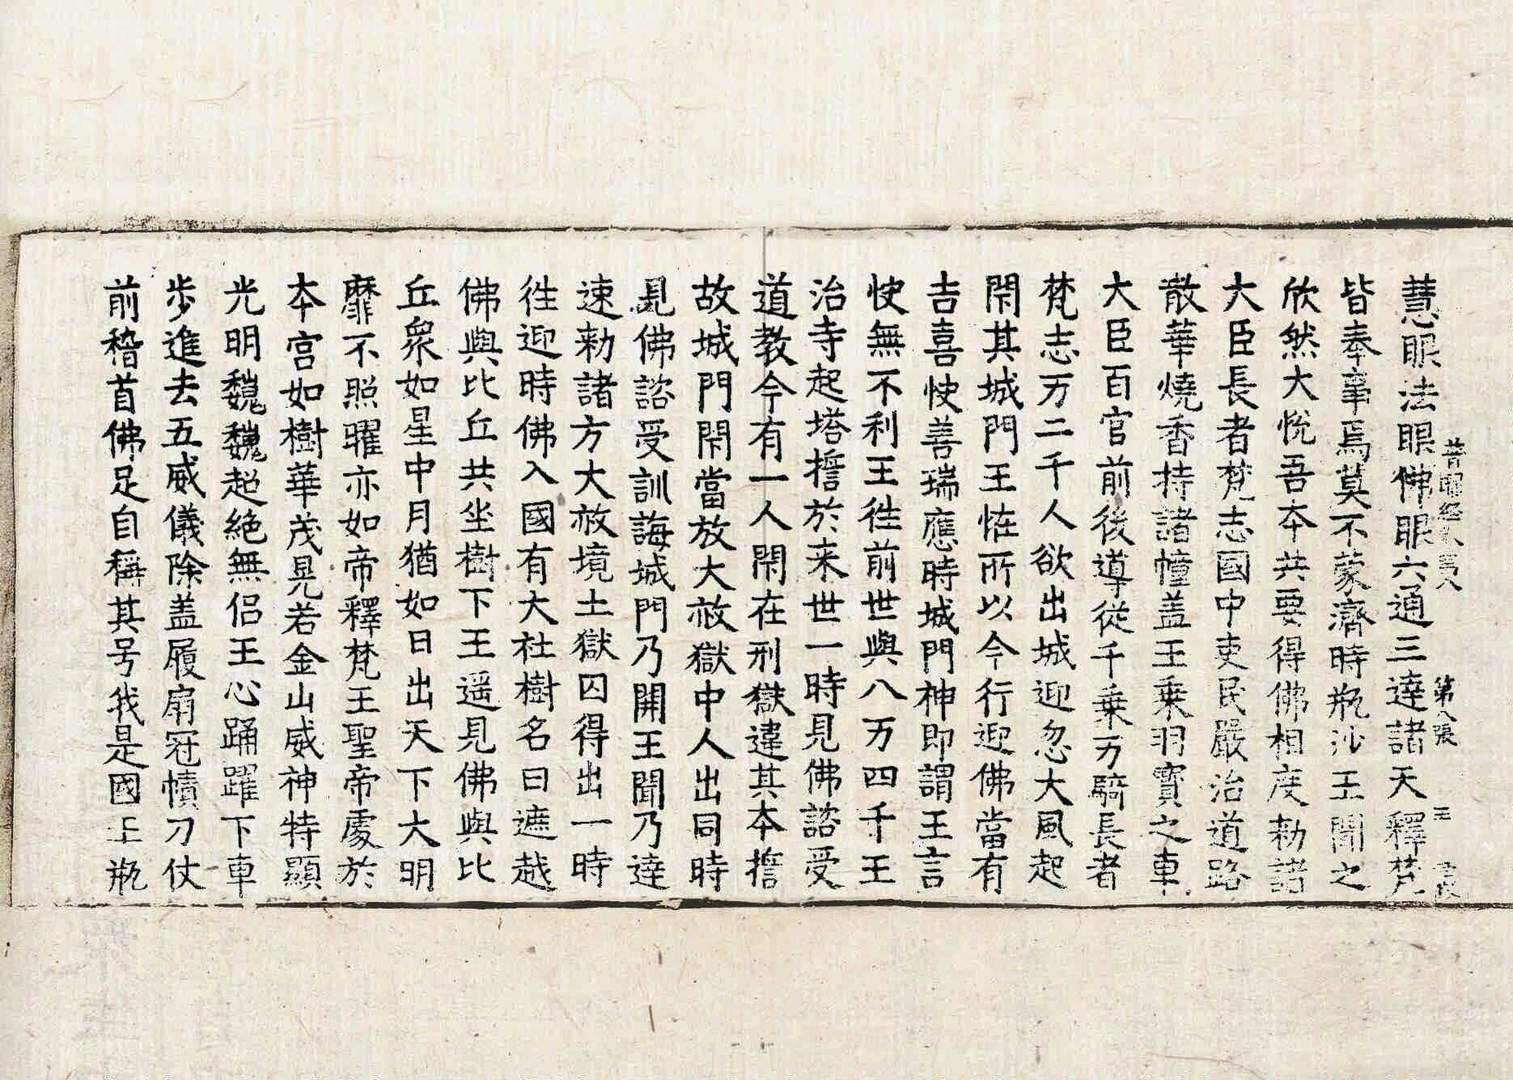 慧眼法眼佛眼六通三達諸天釋梵
皆奉事焉莫不蒙濟時瓶沙王聞之
欣然大悅吾本共要得佛相度勑諸
大臣長者梵志國中吏民嚴治道路
散華燒香持諸幢盖王乗羽寶之車
大臣百官前後導從千乗万騎長者
梵志万二千人欲出城迎忽大風起
閇其城門王恠所以今行迎佛當有
吉喜快善瑞應時城門神即謂王言
快無不利王徃前世與八万四千王
治寺起塔擔於来世一時見佛諮受
道教今有一人閇在刑獄違其本擔
故城門閇當放大赦獄中人出同時
見佛諮受訓誨城門乃開王聞乃達
速勑諸方大赦境土獄囚得出一時
徃迎時佛入國有大社樹名曰遮越
佛與比丘共坐樹下王遥見佛與比
丘衆如星中月猶如日出天下大明
靡不照曜亦如帝釋梵王聖帝處於
本宮如樹華茂晃若金山威神特顯
光明巍巍超絶無侣王心踊躍下車
步進去五威儀除盖履扇冠幘刀仗
前稽首佛足自稱其号我是國王瓶
普曜經 第八張